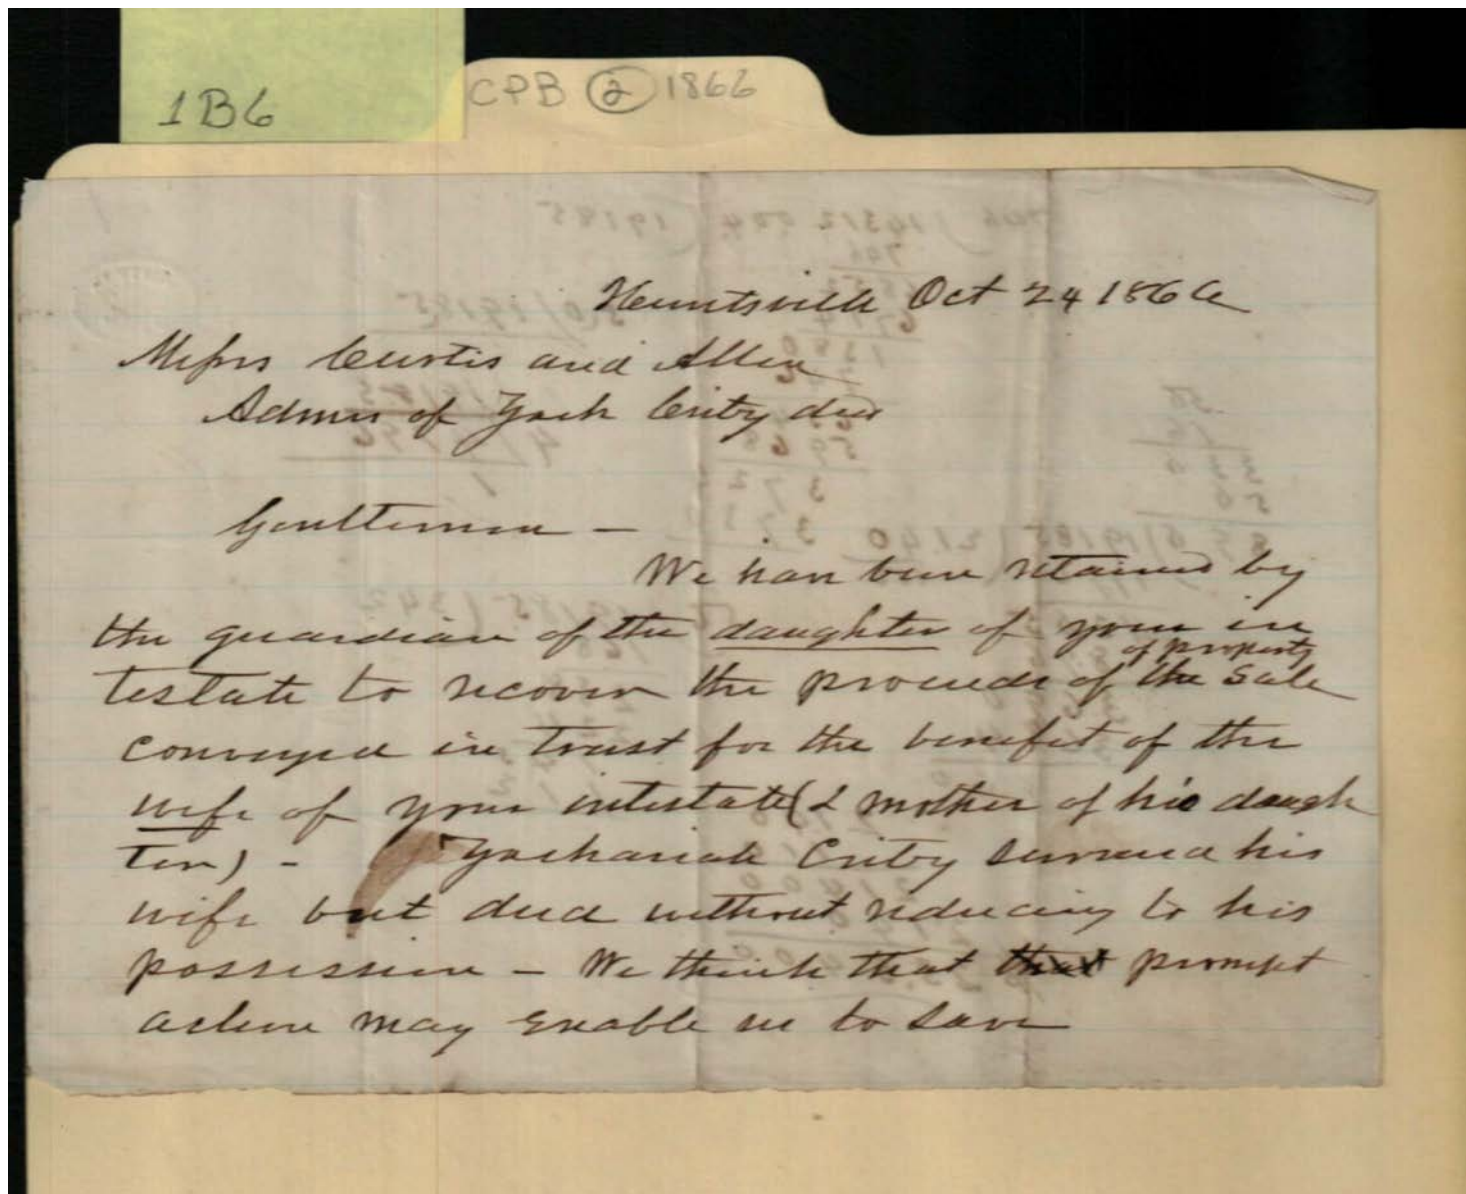 1B6
CPB 2 1866
Huntsville Oct 24 1866
Messrs Curtis and Allen
Admrs of Zach Criby decd
Gentlemen —
We have been retained by
the guardian of the daughter of your in
testate to recover the proceeds of the Sale
of property
conveyed in trust for the benefit of the
wife of your intestate (& mother of his daugh
ter) - Zachariah Criby survived his
wife but died without reducing to his
possession — We think that that prompt
action may enable us to save